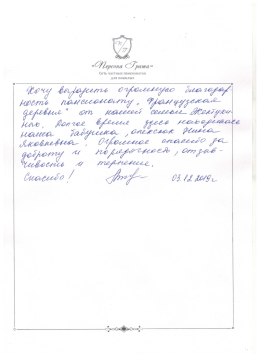 «Первая Грани»
Сеть частных пансионатов
для пожилых
Хочу выразить огромную благодар-
ность пансионату "Французская
деревня" от нашей семьи
Долгое время здесь находилась
наша бабушка, Нина
Яковлевна. Огромное спасибо за
доброту и порядочность, отзыв-
чивость и терпение.
Спасибо! 03.12.2019г.